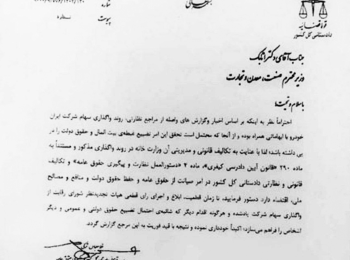 شماره
پیوست
قوه قضائیه
دادستانی کل کشور
جناب آقای دکتر اتابک
وزیر محترم صنعت، معدن و تجارت
با سلام و تحیت؛
احتراماً نظر به اینکه بر اساس اخبار و گزارش های واصله از مراجع نظارتی، روند واگذاری سهام شرکت ایران
خودرو با ابهاماتی همراه بوده و از آنجا که محتمل است تحقق این امر تضییع بیت المال و حقوق دولت را در
پی داشته باشد؛ لذا با عنایت به تکالیف قانونی و مدیریتی آن وزارت خانه در روند واگذاری مذکور و مستنداً به
ماده ۲۹۰ «قانون آیین دادرسی کیفری»، ماده ۲ «دستورالعمل نظارت و پیگیری حقوق عامه» و تکالیف
قانونی و نظارتی دادستانی کل کشور در امر صیانت از حقوق عامه و حفظ حقوق دولت و منافع و مصالح
ملی، اقتضاء دارد دستور فرمایید، تا زمان قطعیت، ابلاغ و اجرای رای قطعی هیات تجدیدنظر شورای رقابت از
واگذاری سهام شرکت یادشده و هرگونه اقدام دیگر که شائبه‌ی احتمال تضییع حقوق دولتی و عمومی و دیگر
اشخاص را فراهم می‌سازد، اکیداً خودداری نموده و نتیجه با قید فوریت به این مرجع گزارش گردد.